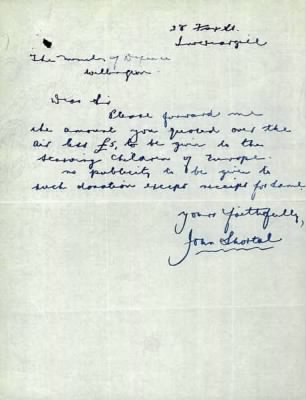 28 Fox St.
Invercargill
The Minister of Defence
Wellington
Dear Sir
Please forward me
the amount you quoted over the
air less £5, to be given to the
starving Children of Europe.
no publicity to be given to
such donation except receipt for same
yours faithfully,
John Shortal